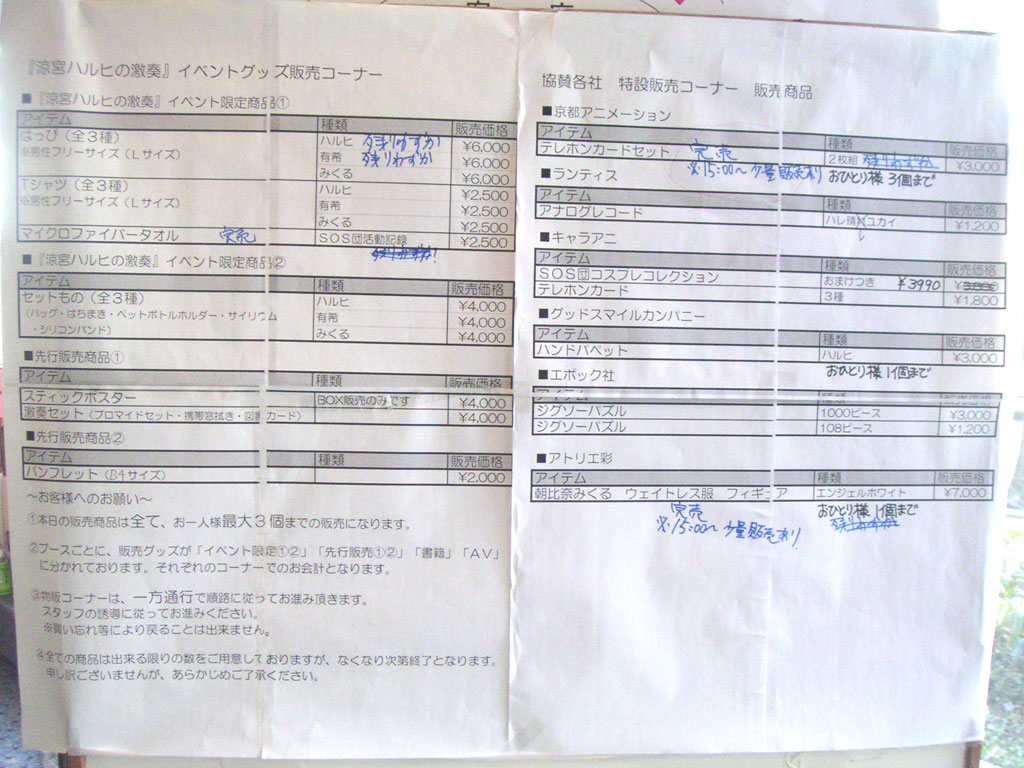 『涼宮ハルヒの激奏』イベントグッズ販売コーナー
■『涼宮ハルヒの激奏』イベント限定商品①
アイテム 種類 販売価格
はっぴ（全３種） ハルヒ 残りわずか ¥6,000
※男性フリーサイズ（Ｌサイズ） 有希 残りわずか ¥6,000
みくる ¥6,000
Ｔシャツ（全３種） ハルヒ ¥2,500
※男性フリーサイズ（Ｌサイズ） 有希 ¥2,500
みくる ¥2,500
マイクロファイバータオル 完売 ＳＯＳ団活動記録 ¥2,500
残りわずか!
■『涼宮ハルヒの激奏』イベント限定商品②
アイテム 種類 販売価格
セットもの（全３種） ハルヒ ¥4,000
（バッグ・はちまき・ペットボトルホルダー・サイリウム 有希 ¥4,000
・シリコンバンド） みくる ¥4,000
■先行販売商品①
アイテム 種類 販売価格
スティックポスター BOX販売のみです ¥4,000
激奏セット（ブロマイドセット・携帯窓拭き・図書カード） ¥4,000
■先行販売商品②
アイテム 種類 販売価格
パンフレット（B4サイズ） ¥2,000
～お客様へのお願い～
①本日の販売商品は全て、お一人様最大３個までの販売になります。
②ブースごとに、販売グッズが「イベント限定①②」「先行販売①②」「書籍」「ＡＶ」
に分かれております。それぞれのコーナーでのお会計となります。
③物販コーナーは、一方通行で順路に従ってお進み頂きます。
スタッフの誘導に従ってお進みください。
※買い忘れ等により戻ることは出来ません。
④全ての商品は出来る限りの数をご用意しておりますが、なくなり次第終了となります。
申し訳ございませんが、あらかじめご了承ください。
協賛各社 特設販売コーナー 販売商品
■京都アニメーション
アイテム 種類 販売価格
テレホンカードセット 完売 ２枚組 残りわずか ¥3,000
※15:00～ 少量販売あり おひとり様 3個まで
■ランティス
アイテム 種類 販売価格
アナログレコード ハレ晴レユカイ ¥1,200
■キャラアニ
アイテム 種類 販売価格
ＳＯＳ団コスプレコレクション おまけつき ¥3990
テレホンカード 3種 ¥1,800
■グッドスマイルカンパニー
アイテム 種類 販売価格
ハンドパペット ハルヒ ¥3,000
おひとり様 1個まで
■エポック社
アイテム 種類 販売価格
ジグソーパズル 1000ピース ¥3,000
ジグソーパズル 108ピース ¥1,200
■アトリエ彩
アイテム 種類 販売価格
朝比奈みくる ウェイトレス服 フィギュア エンジェルホワイト ¥7,000
完売 おひとり様 1個まで
※15:00～ 少量販売あり 残りわずか